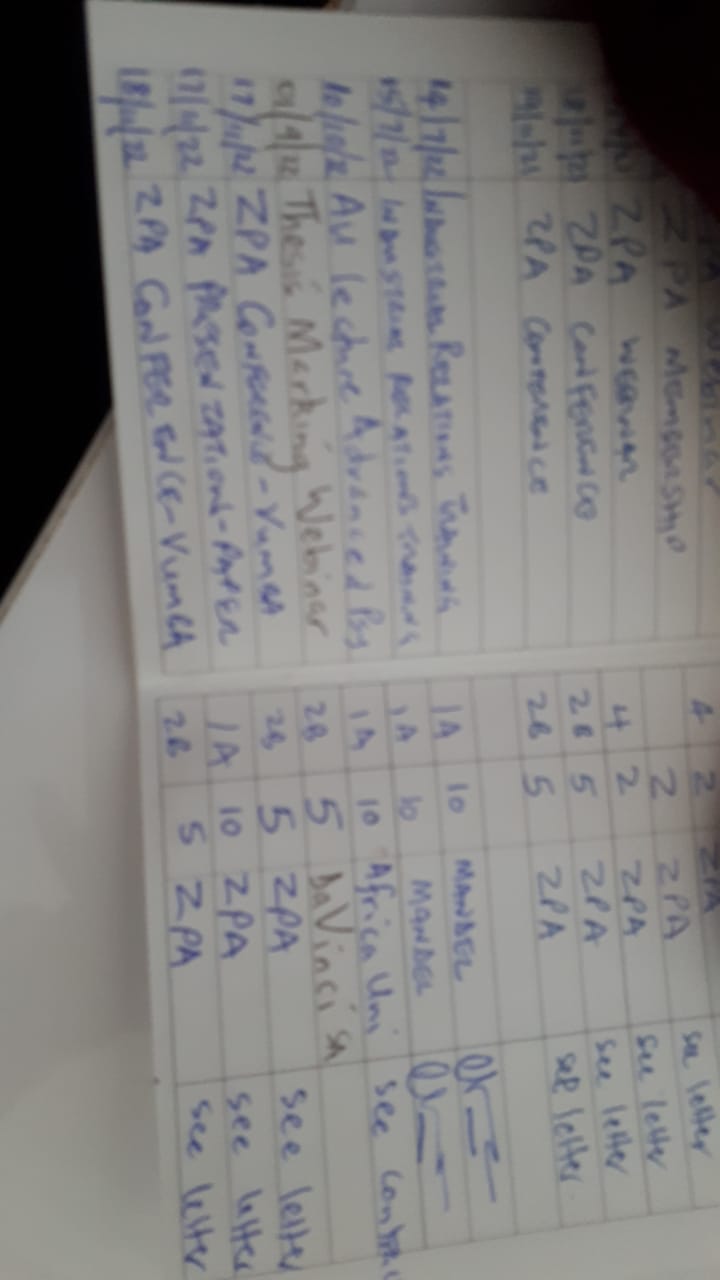 ZPA MEMBERSHIP 2 ZPA see letter
ZPA WEBINAR 4 2 ZPA see letter
18/11/21 ZPA CONFERENCE 2B 5 ZPA see letter
19/11/21 ZPA CONFERENCE 2B 5 ZPA see letter
14/7/22 INDUSTRIAL RELATIONS TRAINING 1A 10 MANDEL
15/7/22 INDUSTRIAL RELATIONS TRAINING 1A 10 MANDEL
10/10/22 AU lecture Advanced Psy 1A 10 Africa Uni see
Thesis Marking Webinar 2B 5 DaVinci SA
17/11/22 ZPA CONFERENCE - VUMBA 2B 5 ZPA see letter
17/11/22 ZPA PRESENTATION - PAPER 1A 10 ZPA see letter
18/11/22 ZPA CONFERENCE - VUMBA 2B 5 ZPA see letter